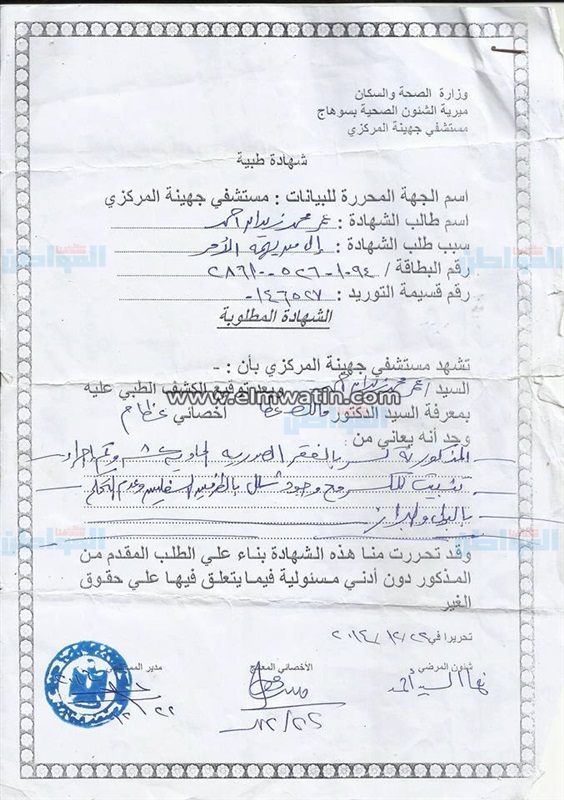 وزارة الصحة والسكان
ميرية الشئون الصحية بسوهاج
مستشفي جهينة المركزي
شهادة طبية
اسم الجهة المحررة للبيانات : مستشفي جهينة المركزي
اسم طالب الشهادة : عمر محمد احمد
سبب طلب الشهادة : إلى من يهمه الأمر
رقم البطاقة /
رقم قسيمة التوريد : ١٤٦٥٢٧
الشهادة المطلوبة
تشهد مستشفي جهينة المركزي بأن : -
السيد / عمر محمد وبعد توقيع الكشف الطبي عليه
www.elmwatin.com
بمعرفة السيد الدكتور أخصائي عظام
وجد أنه يعاني من :
المذكور به كسر بالفقرة الصدرية الحادية عشر وتم إجراء
تثبيت للكسر مع وجود شلل بالطرفين السفليين وعدم التحكم
بالبول والبراز
وقد تحررت منا هذه الشهادة بناء علي الطلب المقدم من
المذكور دون أدني مسئولية فيما يتعلق فيها علي حقوق
الغير
تحريرا في ٢٠١٤/١٢/٢٢
شئون المرضي
الأخصائي المعالج
مدير
نها السيد أحمد
١٢/٢٢
المواطن